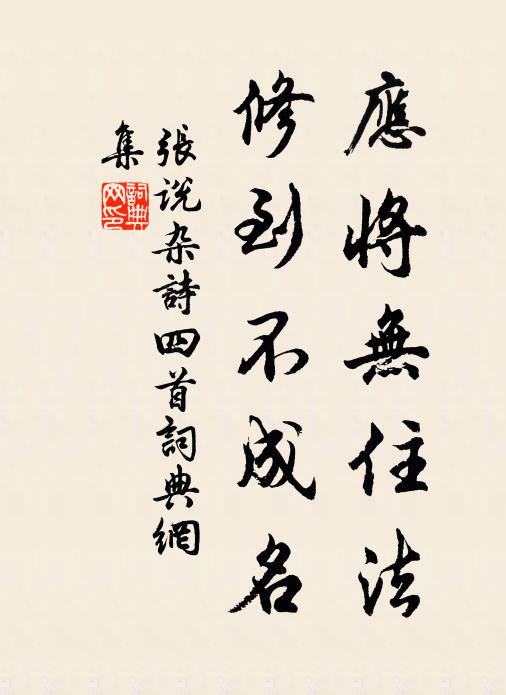 應將無住法
修到不成名
張說杂詩四首詞典網
集
詞典网印